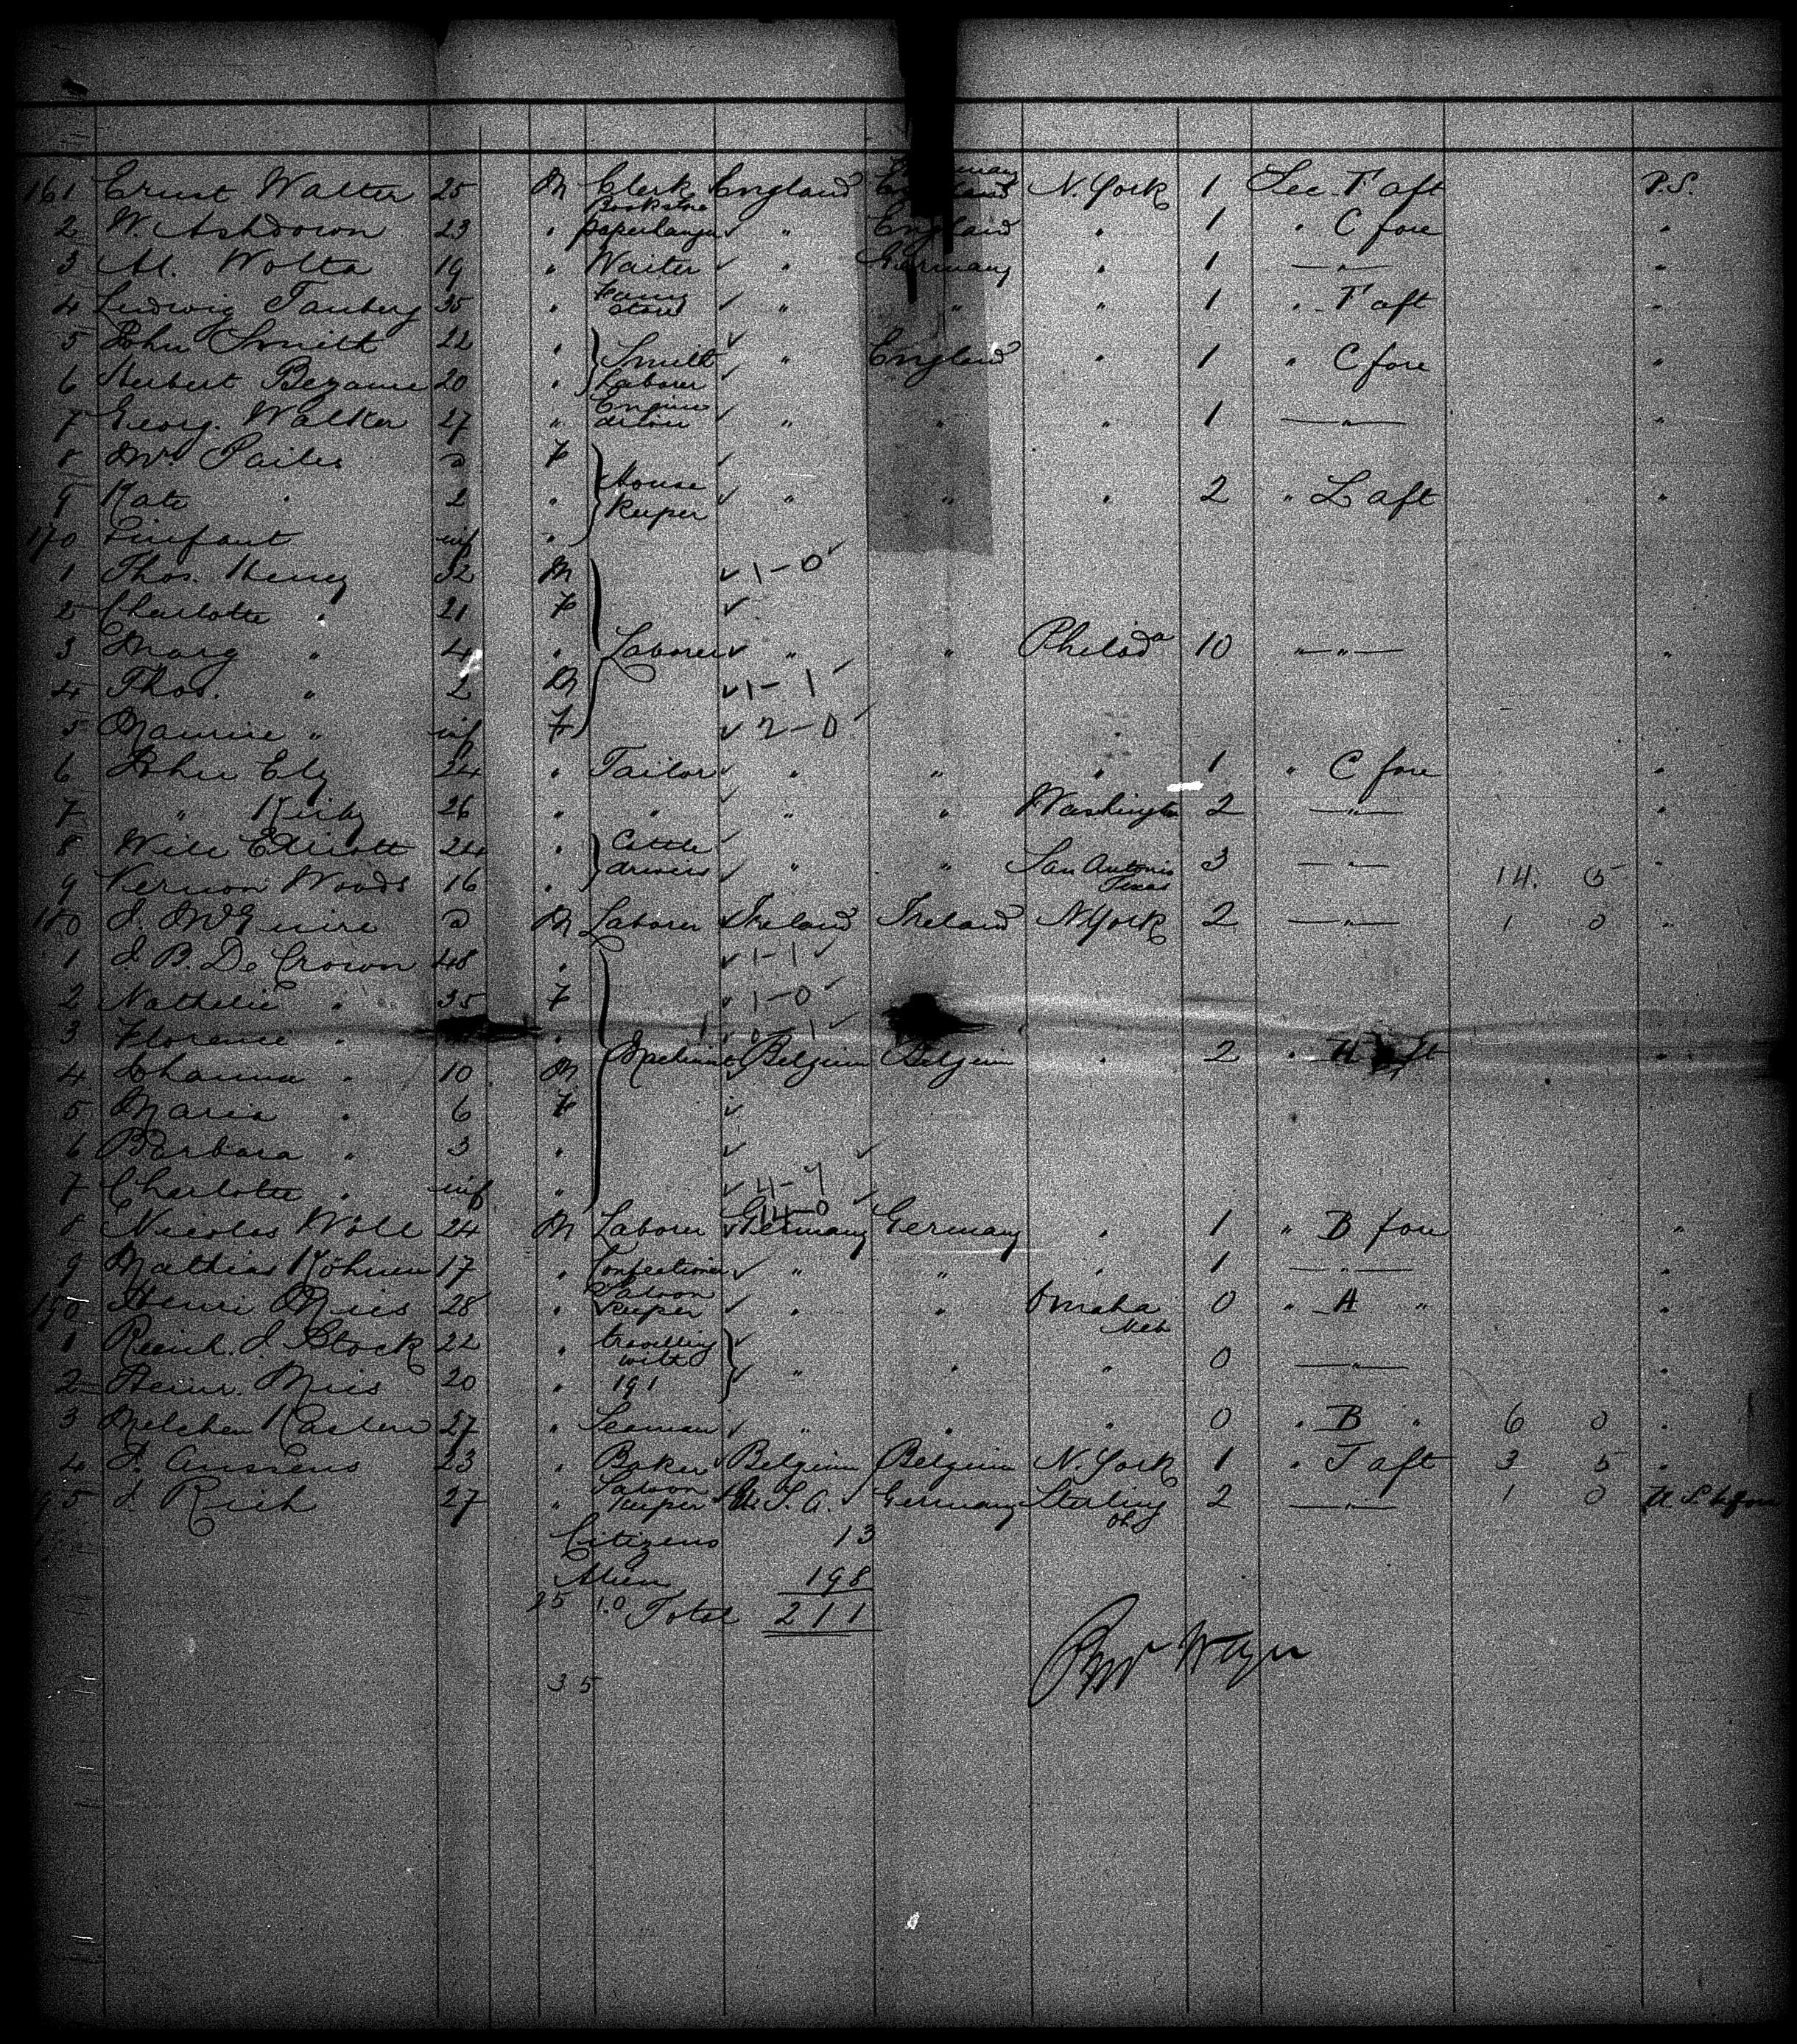 161 Ernst Walter 25 M Clerk Bookstore England N. York 1 Sec. F aft P.S.
2 W. Ashdown 23 " paperhanger " England " 1 " C fore "
3 Al. Wolta 19 " Waiter " Germany " 1 — " — "
4 Ludwig Tauberg 35 " Fancy Store " " " 1 " F aft "
5 John Smith 22 " Smith " England " 1 " C fore "
6 Herbert 20 " Laborer
7 Georg. Walker 27 " Engine driver " " " 1 — " — "
8 Mrs. Pailes F House
9 Kate " 2 " Keeper " " " 2 " L aft "
170 infant inf "
1 Thos. Henry 32 M 1-0
2 Charlotte " 21 F
3 Marg " 4 " Laborer " " Philada 10 " — " — "
4 Thos. " 2 M 1-1
5 Maurise " inf F 2-0
6 John Ely 24 " Tailor " " " 1 " C fore "
7 " Kirby 26 " " " " Washington 2 — " — "
8 Will Elliott 24 " Cattle
9 Vernon Woods 16 " drivers " " San Antonio Texas 3 — " — 14. 5 "
180 J. McGuire M Laborer Ireland Ireland N York 2 — " — 1 0 "
1 J. B. De Crown 48 " 1-1
2 Nathelie " 35 F 1-0
3 Florence " " 0-1
4 " 10 M Machinist Belgium Belgium " 2 " H aft "
5 Maria " 6 F
6 Barbara " 3 "
7 Charlotte " inf " 4-1
14-0
8 Nicolas Woll 24 M Laborer Germany Germany " 1 " B fore "
9 Mathias Köhnen 17 " Confectioner " " " 1 — " — "
190 Henri Mies 28 " Saloon Keeper " " Omaha Neb 0 " A " "
1 Reinh. J. Stock 22 " travelling with 191 " " " 0 — " — "
2 Heinr. Mies 20 "
3 Melcher Kasten 27 " Seaman " " " 0 " B " 6 0 "
4 J. Anssens 23 " Baker Belgium Belgium N. York 1 " F aft 3 5 "
195 J. Rich 27 " Saloon Keeper U. S. A. Germany Sterling 2 — " — 1 0
Citizens 13
Alien 198
25 10 Total 211
35